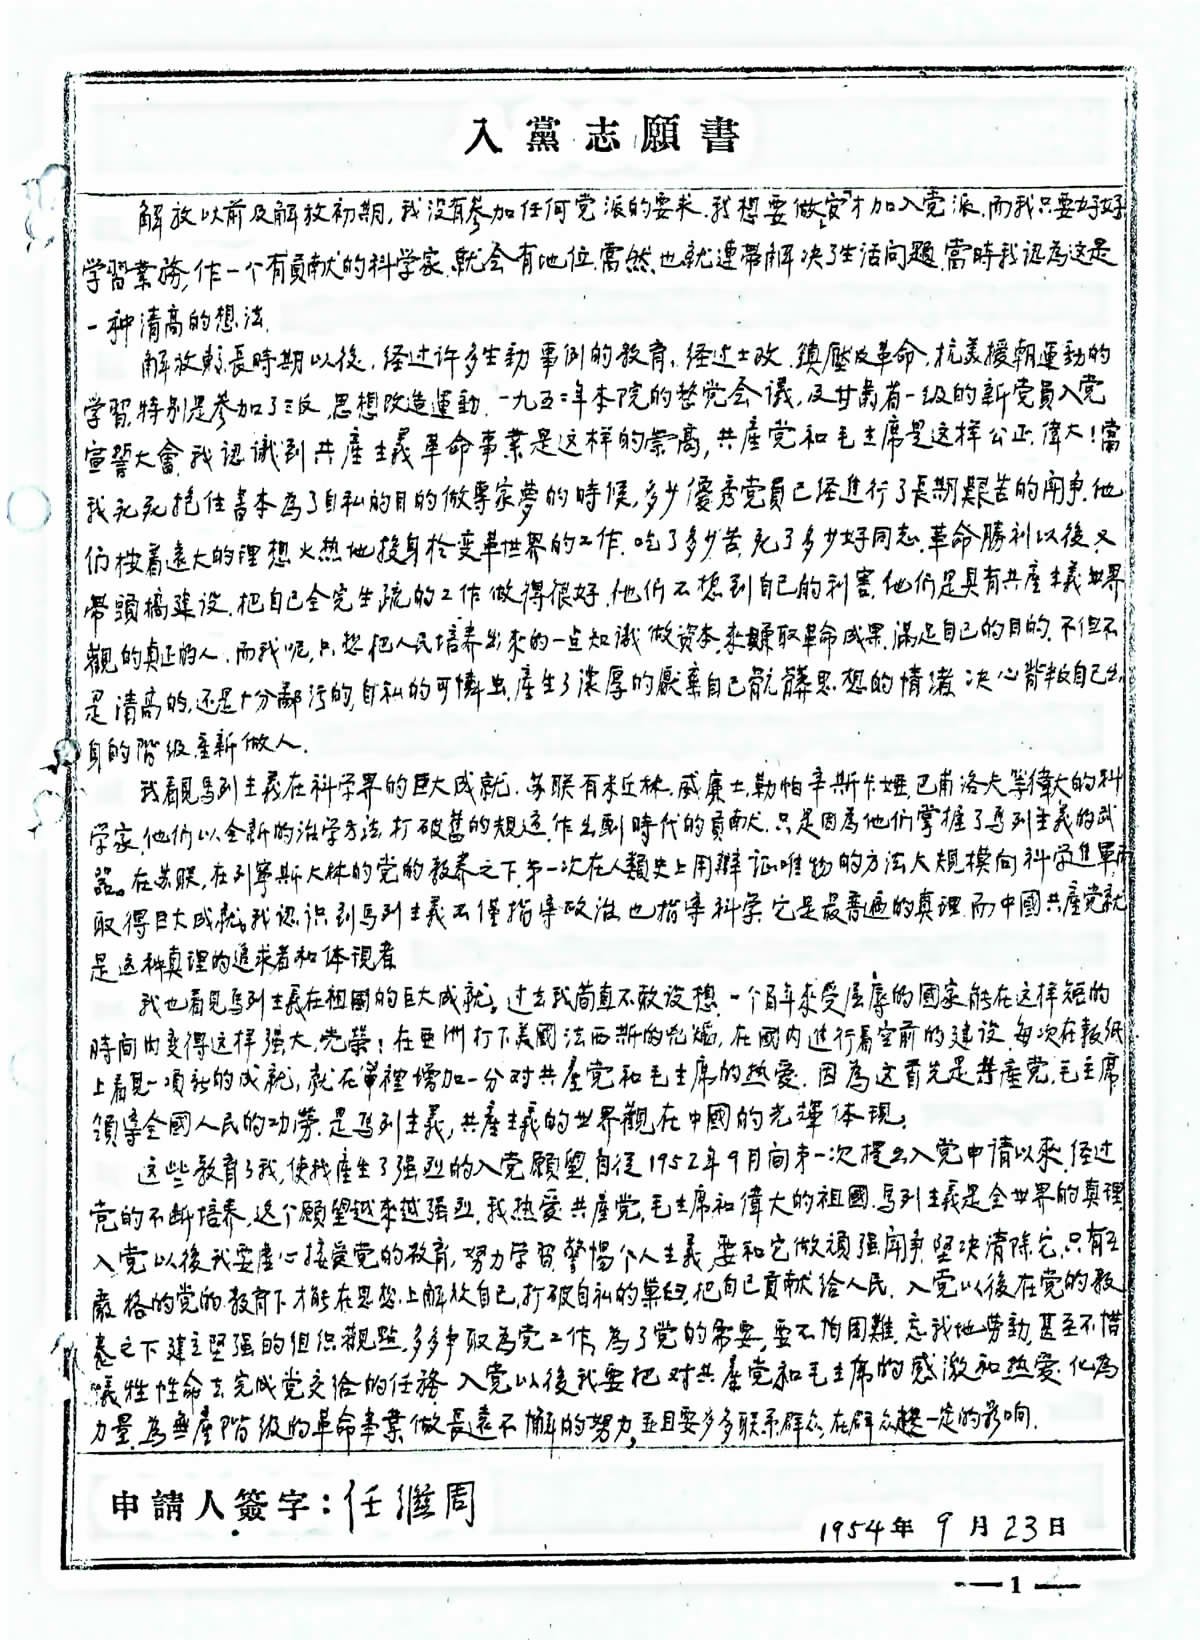 入黨志願書
解放以前及解放初期，我没有参加任何党派的要求，我想要做官才加入党派，而我只要好好
学習業務，作一个有貢献的科学家，就会有地位，當然也就連帶解决了生活问題，當時我認為这是
一种清高的想法。
解放較長時期以後，经过许多生動事例的教育，经过土改、鎮壓反革命、抗美援朝運動的
学習，特别是参加了三反、思想改造運動，一九五二年本院的整党会議，及甘肃省一级的新党員入党
宣誓大會，我認識到共產主義革命事業是这样的崇高，共產党和毛主席是这样公正、偉大！當
我死死抱住書本為了自私的目的做專家夢的時候，多少優秀党員已经進行了長期艱苦的鬥争，他
们按着遠大的理想火热地投身於变革世界的工作，吃了多少苦，死了多少好同志，革命勝利以後，又
帶頭搞建设，把自己全完生疏的工作做得很好，他们不想到自己的利害，他们是具有共產主義世界
觀的真正的人，而我呢，只想把人民培养出來的一点知識做资本，來賺取革命成果，滿足自己的目的，不但不
是清高的，还是十分鄙污的，自私的可憐虫，產生了濃厚的厭棄自己骯髒思想的情緒，决心背叛自己出
身的階级，重新做人。
我看見馬列主義在科学界的巨大成就，苏联有米丘林、威廉士、勒帕辛斯卡婭、巴甫洛夫等偉大的科
学家，他们以全新的治学方法，打破舊的規律，作出劃時代的貢献，只是因為他们掌握了馬列主義的武
器。在苏联，在列寧斯大林的党的教养之下，第一次在人類史上用辯证唯物的方法大規模向科学進軍而
取得巨大成就。我認识到馬列主義不僅指導政治，也指導科学，它是最普遍的真理，而中國共產党就
是这种真理的追求者和体现者。
我也看見馬列主義在祖國的巨大成就。过去我简直不敢设想，一个百年來受屈辱的國家能在这样短的
時间内变得这样强大，光榮！在亚洲打下美國法西斯的兇燄，在國内進行着空前的建设，每次在報紙
上看見一項新的成就，就在心裡增加一分对共產党和毛主席的热爱，因為这首先是共產党，毛主席
領導全國人民的功勞，是馬列主義，共產主義的世界觀在中國的光輝体现。
这些教育了我，使我產生了强烈的入党願望，自從1952年9月间第一次提出入党申请以來，经过
党的不断培养，这个願望越來越强烈，我热爱共產党，毛主席和偉大的祖國，馬列主義是全世界的真理，
入党以後我要虛心接受党的教育，努力学習，警惕个人主義，要和它做頑强鬥争，坚决清除它，只有在
嚴格的党的教育下才能在思想上解放自己，打破自私的巢穴，把自己貢献给人民，入党以後在党的教
养之下建立坚强的组织觀點，多多争取為党工作，為了党的需要，要不怕困難，忘我地劳動，甚至不惜
犧牲性命去完成党交给的任務，入党以後我要把对共產党和毛主席的感激和热爱，化為
力量，為無產階级的革命事業做長遠不懈的努力，並且要多多联系群众，在群众起一定的影响。
申請人簽字：任繼周
1954年9月23日
—1—